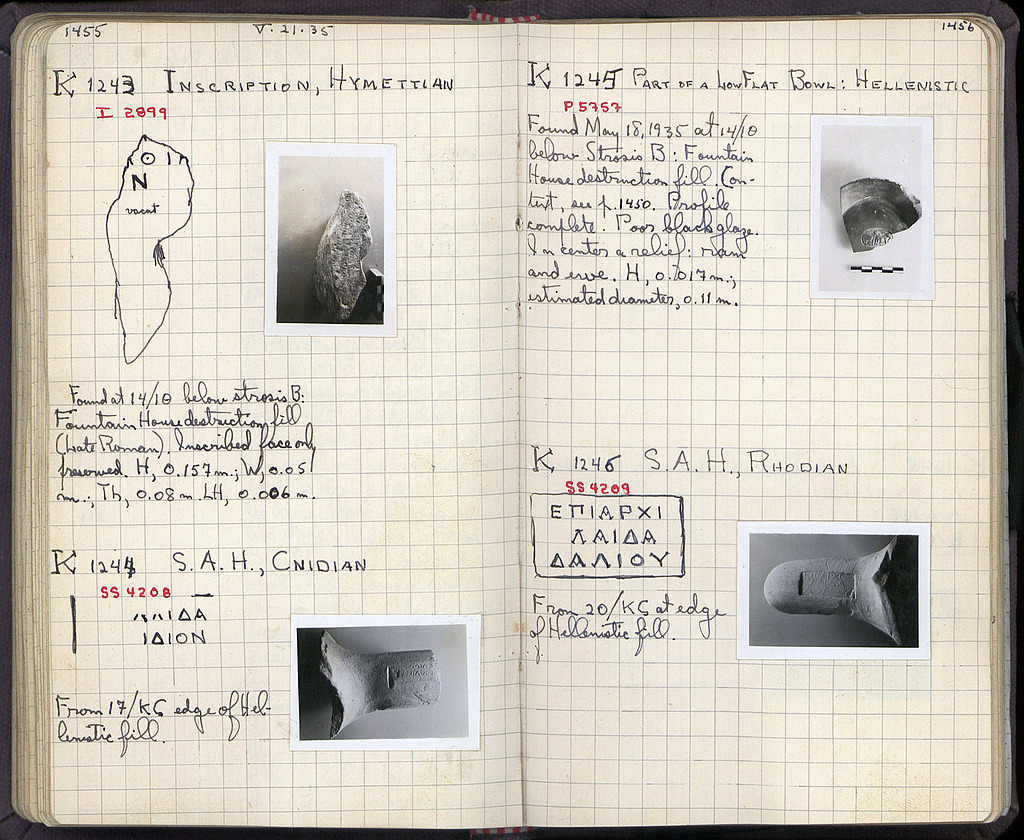 1455
V.21.35
K 1243 INSCRIPTION, HYMETTIAN
I 2899
Ο Ι
N
vacat
Found at 14/Θ below strosis B:
Fountain House destruction fill
(Late Roman). Inscribed face only
preserved. H, 0.157 m.; W, 0.051
m.; Th, 0.08 m. LH, 0.006 m.
K 1244 S.A.H., CNIDIAN
SS 4208
ΙΔΑ
ΙΔΙΟΝ
From 17/ΚϚ edge of Hel-
lenistic fill.
1456
K 1245 PART OF A LOW FLAT BOWL: HELLENISTIC
P 5757
Found May 18, 1935 at 14/Θ
below Strosis B: Fountain
House destruction fill. Con-
text, see p. 1450. Profile
complete. Poor black glaze.
In center a relief: man
and ewe. H, 0.017 m.;
estimated diameter, 0.11 m.
K 1246 S.A.H., RHODIAN
SS 4209
ΕΠΙΑΡΧΙ
ΛΑΙΔΑ
ΔΑΛΙΟΥ
From 20/ΚϚ at edge
of Hellenistic fill.